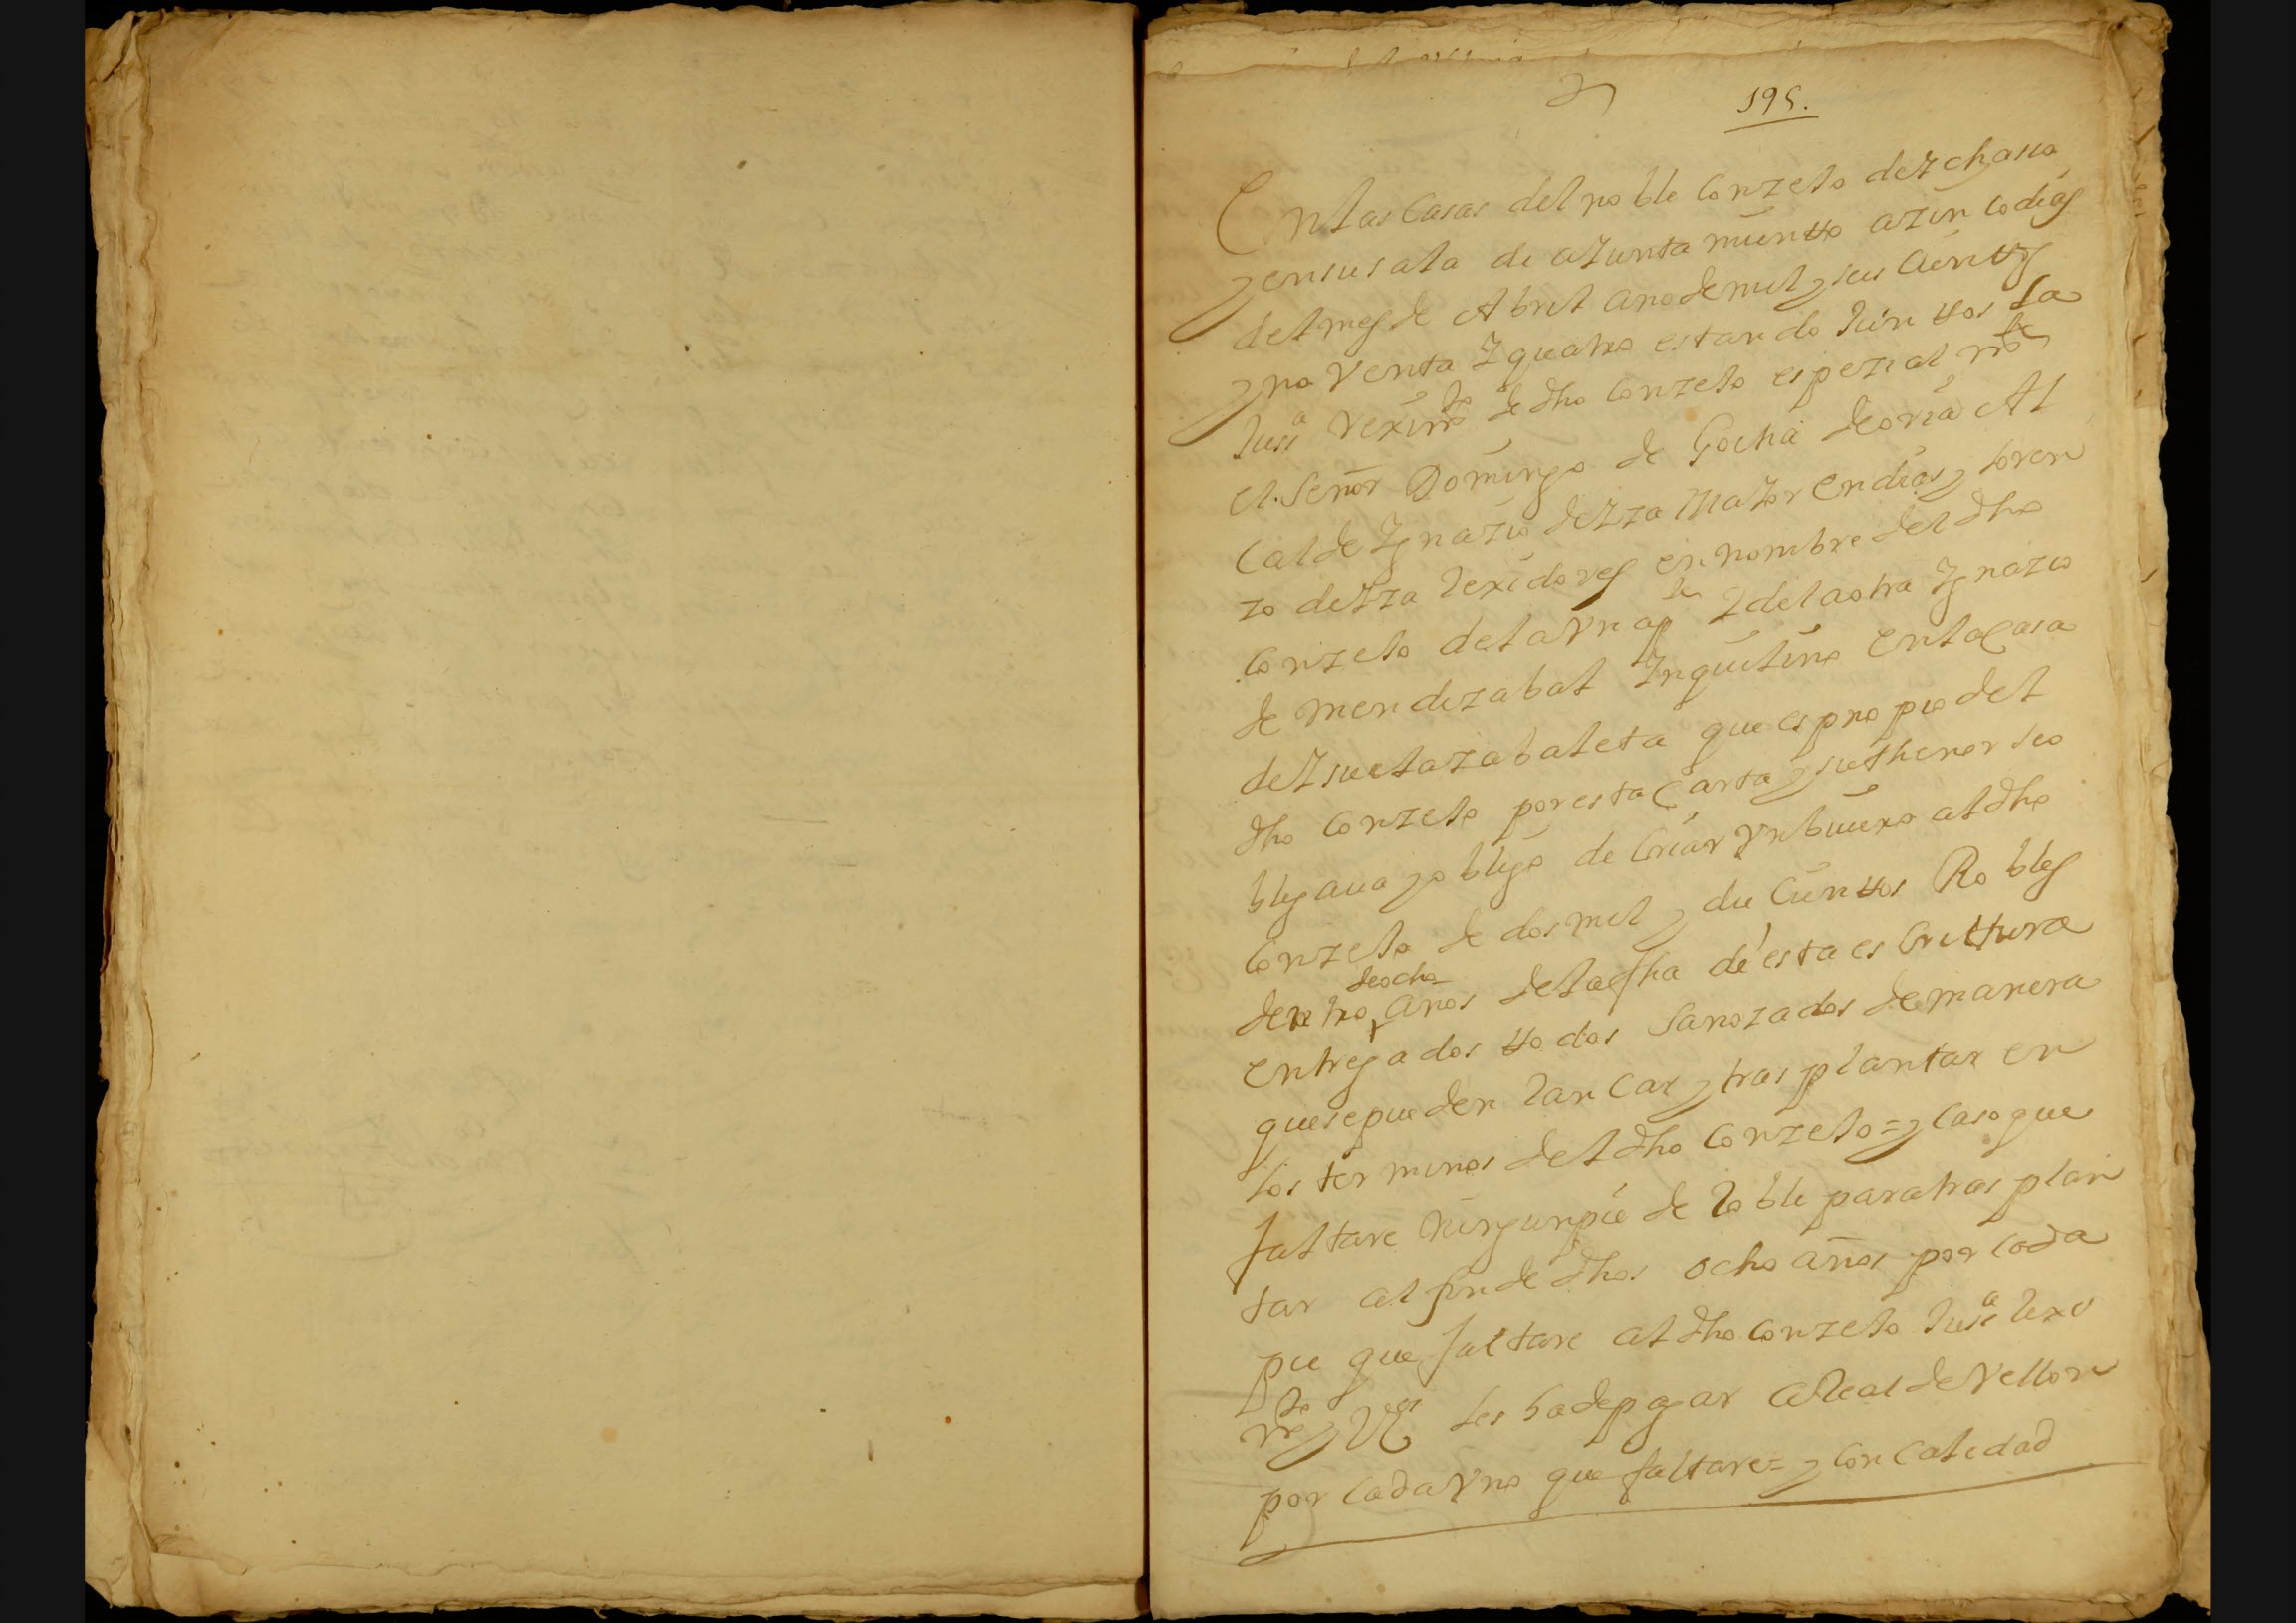 195.
En las Casas del noble Conzejo de Ychaso
y en su sala de aiuntamientto a zinco dias
del mes de Abril año de mil y seis cientos
y noventa y quatro estando Junttos la
Jusª rexim<sup>to</sup> de dho Conzejo espezialm<sup>te</sup>
el Señor Domingo de Goiha de oria Al
Calde Ygnazio de Yza Maior en dias y loren
zo de Yza rexidores en nombre del dho
Conzejo de la Vna p<sup>te</sup> y de la otra Ygnazio
de mendizabal Ynquilino en la Casa
de Ysuelazabaleta que es propio del
dho Conzejo por esta Carta y su thenor se o
bligava y obligo de Criar Vn bivero al dho
Conzejo de dos mil y du cientos Robles
dentro de ocho años de la fha de esta es Crittura
entregados ttodos Sanozados de manera
que se pueden Ran Car y trasplantar en
los terminos del dho Conzejo = y Caso que
faltare ningun pie de Roble para trasplan
tar al fin de dhos ocho años por cada
pie que faltare al dho Conzejo Jusª rexi
m<sup>to</sup> y V<sup>os</sup> les ha de pagar a Real de Vellon
por cada Vno que faltare = y Con Calidad